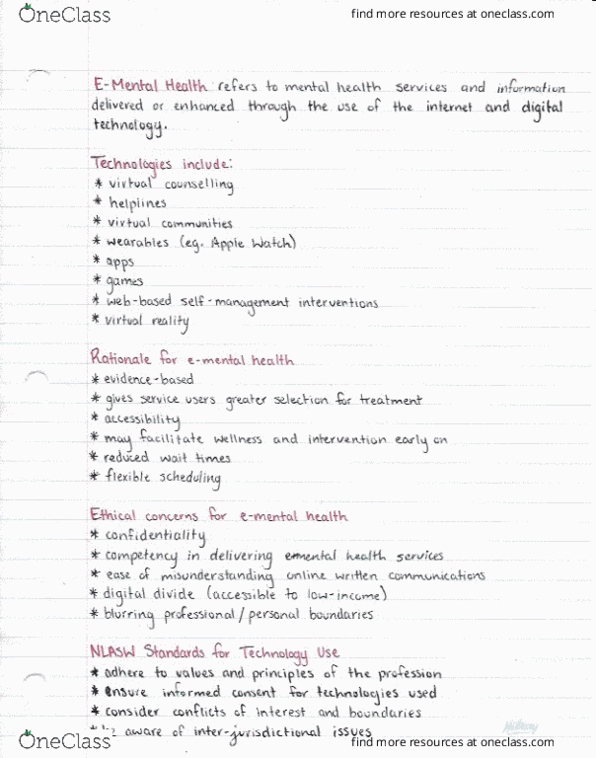 OneClass
find more resources at oneclass.com
E-Mental Health refers to mental health services and information
delivered or enhanced through the use of the internet and digital
technology.
Technologies include:
* virtual counselling
* helplines
* virtual communities
* wearables (eg. Apple Watch)
* apps
* games
* web-based self-management interventions
* virtual reality
Rationale for e-mental health
* evidence-based
* gives service users greater selection for treatment
* accessibility
* may facilitate wellness and intervention early on
* reduced wait times
* flexible scheduling
Ethical concerns for e-mental health
* confidentiality
* competency in delivering emental health services
* ease of misunderstanding online written communications
* digital divide (accessible to low-income)
* blurring professional/personal boundaries
NLASW Standards for Technology Use
* adhere to values and principles of the profession
* ensure informed consent for technologies used
* consider conflicts of interest and boundaries
aware of inter-jurisdictional issues
OneClass
find more resources at oneclass.com